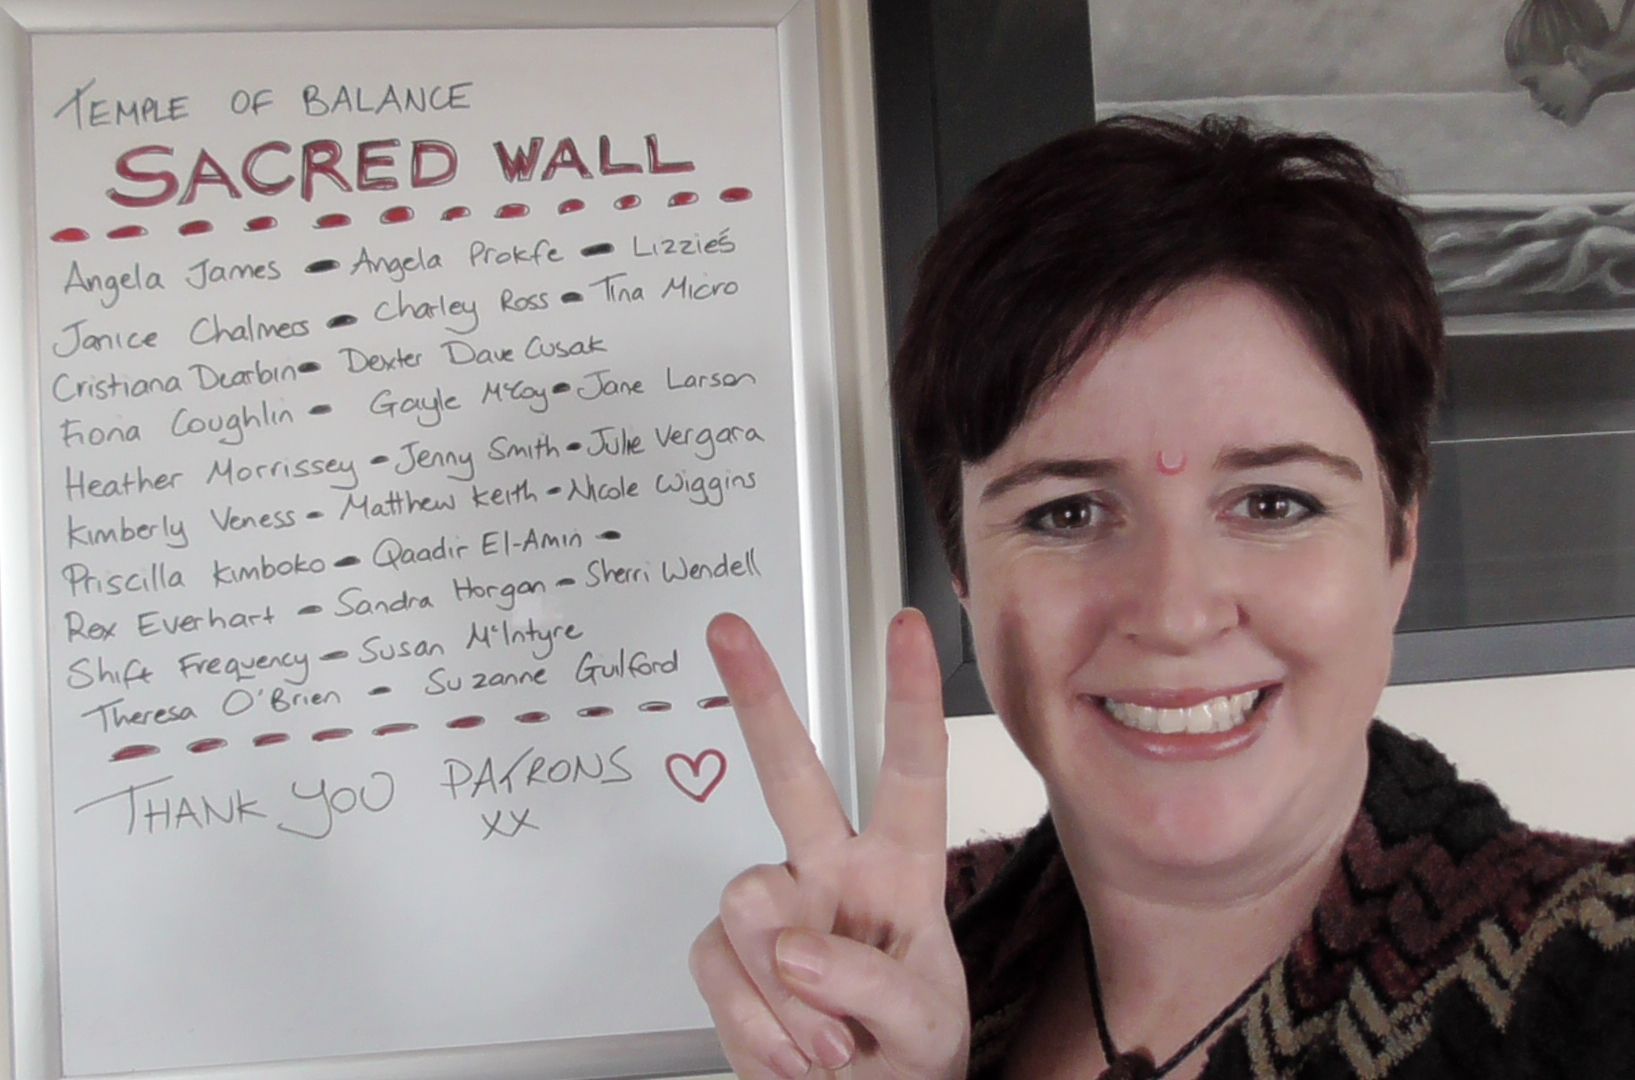 TEMPLE OF BALANCE
SACRED WALL
Angela James - Angela Prokfe - Lizzie's
Janice Chalmers - Charley Ross - Tina Micro
Cristiana Dearbin - Dexter Dave Cusak
Fiona Coughlin - Gayle McCoy - Jane Larson
Heather Morrissey - Jenny Smith - Julie Vergara
Kimberly Veness - Matthew Keith - Nicole Wiggins
Priscilla Kimboko - Qaadir El-Amin -
Rex Everhart - Sandra Horgan - Sherri Wendell
Shift Frequency - Susan McIntyre
Theresa O'Brien - Suzanne Guilford
THANK YOU PATRONS ♡
xx